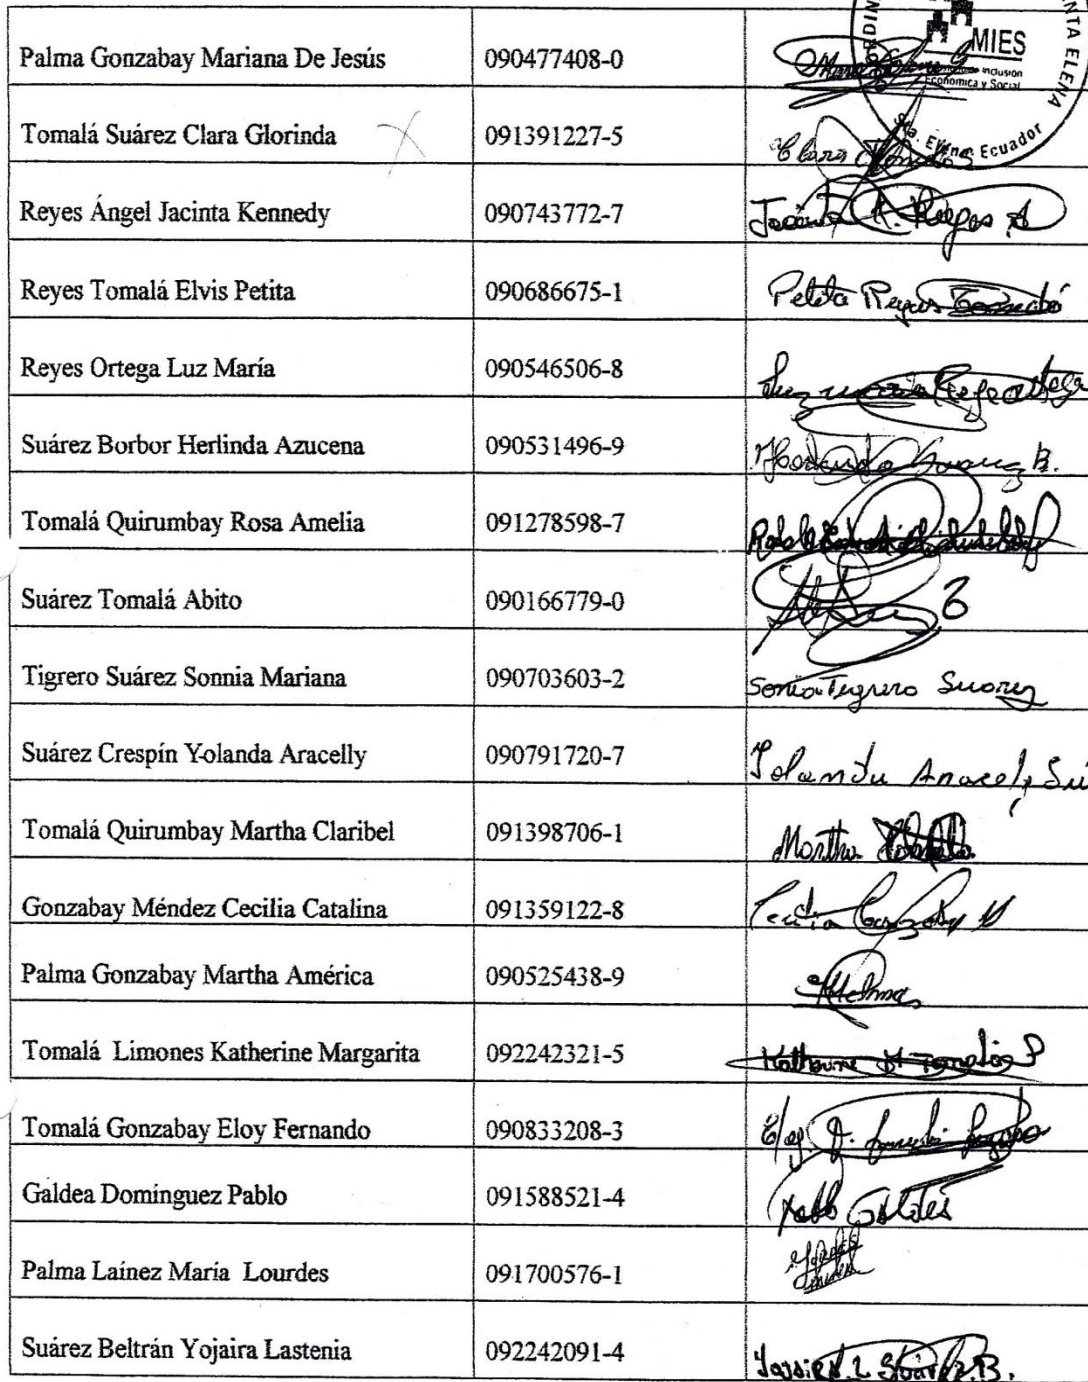 MIES
Económica y Social
Sta. Elena - Ecuador
Palma Gonzabay Mariana De Jesús 090477408-0
Tomalá Suárez Clara Glorinda 091391227-5 Clara
Reyes Ángel Jacinta Kennedy 090743772-7 Jacinta K. Reyes A
Reyes Tomalá Elvis Petita 090686675-1 Petita Reyes Tomalá
Reyes Ortega Luz María 090546506-8 Luz maria Reyes Ortega
Suárez Borbor Herlinda Azucena 090531496-9 Suarez B.
Tomalá Quirumbay Rosa Amelia 091278598-7
Suárez Tomalá Abito 090166779-0
Tigrero Suárez Sonnia Mariana 090703603-2 Sonia Tigrero Suarez
Suárez Crespín Yolanda Aracelly 090791720-7 Yolanda Aracely Suá
Tomalá Quirumbay Martha Claribel 091398706-1 Martha Tomalá
Gonzabay Méndez Cecilia Catalina 091359122-8 Cecilia Gonzabay M
Palma Gonzabay Martha América 090525438-9
Tomalá Limones Katherine Margarita 092242321-5 Katherine M Tomalá
Tomalá Gonzabay Eloy Fernando 090833208-3 Eloy
Galdea Domínguez Pablo 091588521-4 Pablo Galdea
Palma Laínez María Lourdes 091700576-1
Suárez Beltrán Yojaira Lastenia 092242091-4 L. Suárez B.